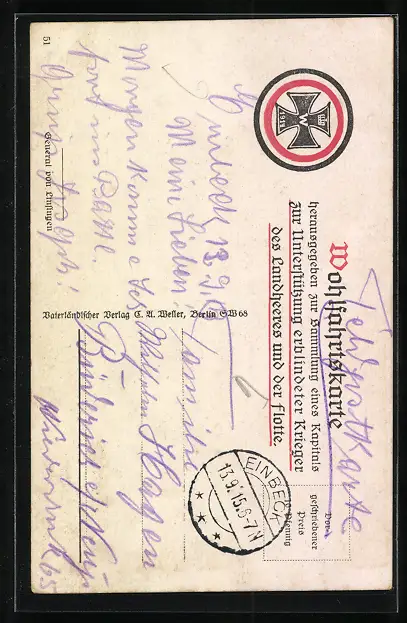 51
General von Linsingen
Einbeck 13.9.15
Meine Lieben!
Morgen komme ich
fort
Gruss
Vaterländischer Verlag C. A. Weller, Berlin SW 68
1914
W
Wohlfahrtskarte
herausgegeben zur Sammlung eines Kapitals
zur Unterstützung erblindeter Krieger
des Landheeres und der Flotte.
Feldpostkarte
Vor-
geschriebener
Preis
Pfennig
EINBECK
13.9.15.6-7N
Familie
Wilhelm Hagen
Büderich